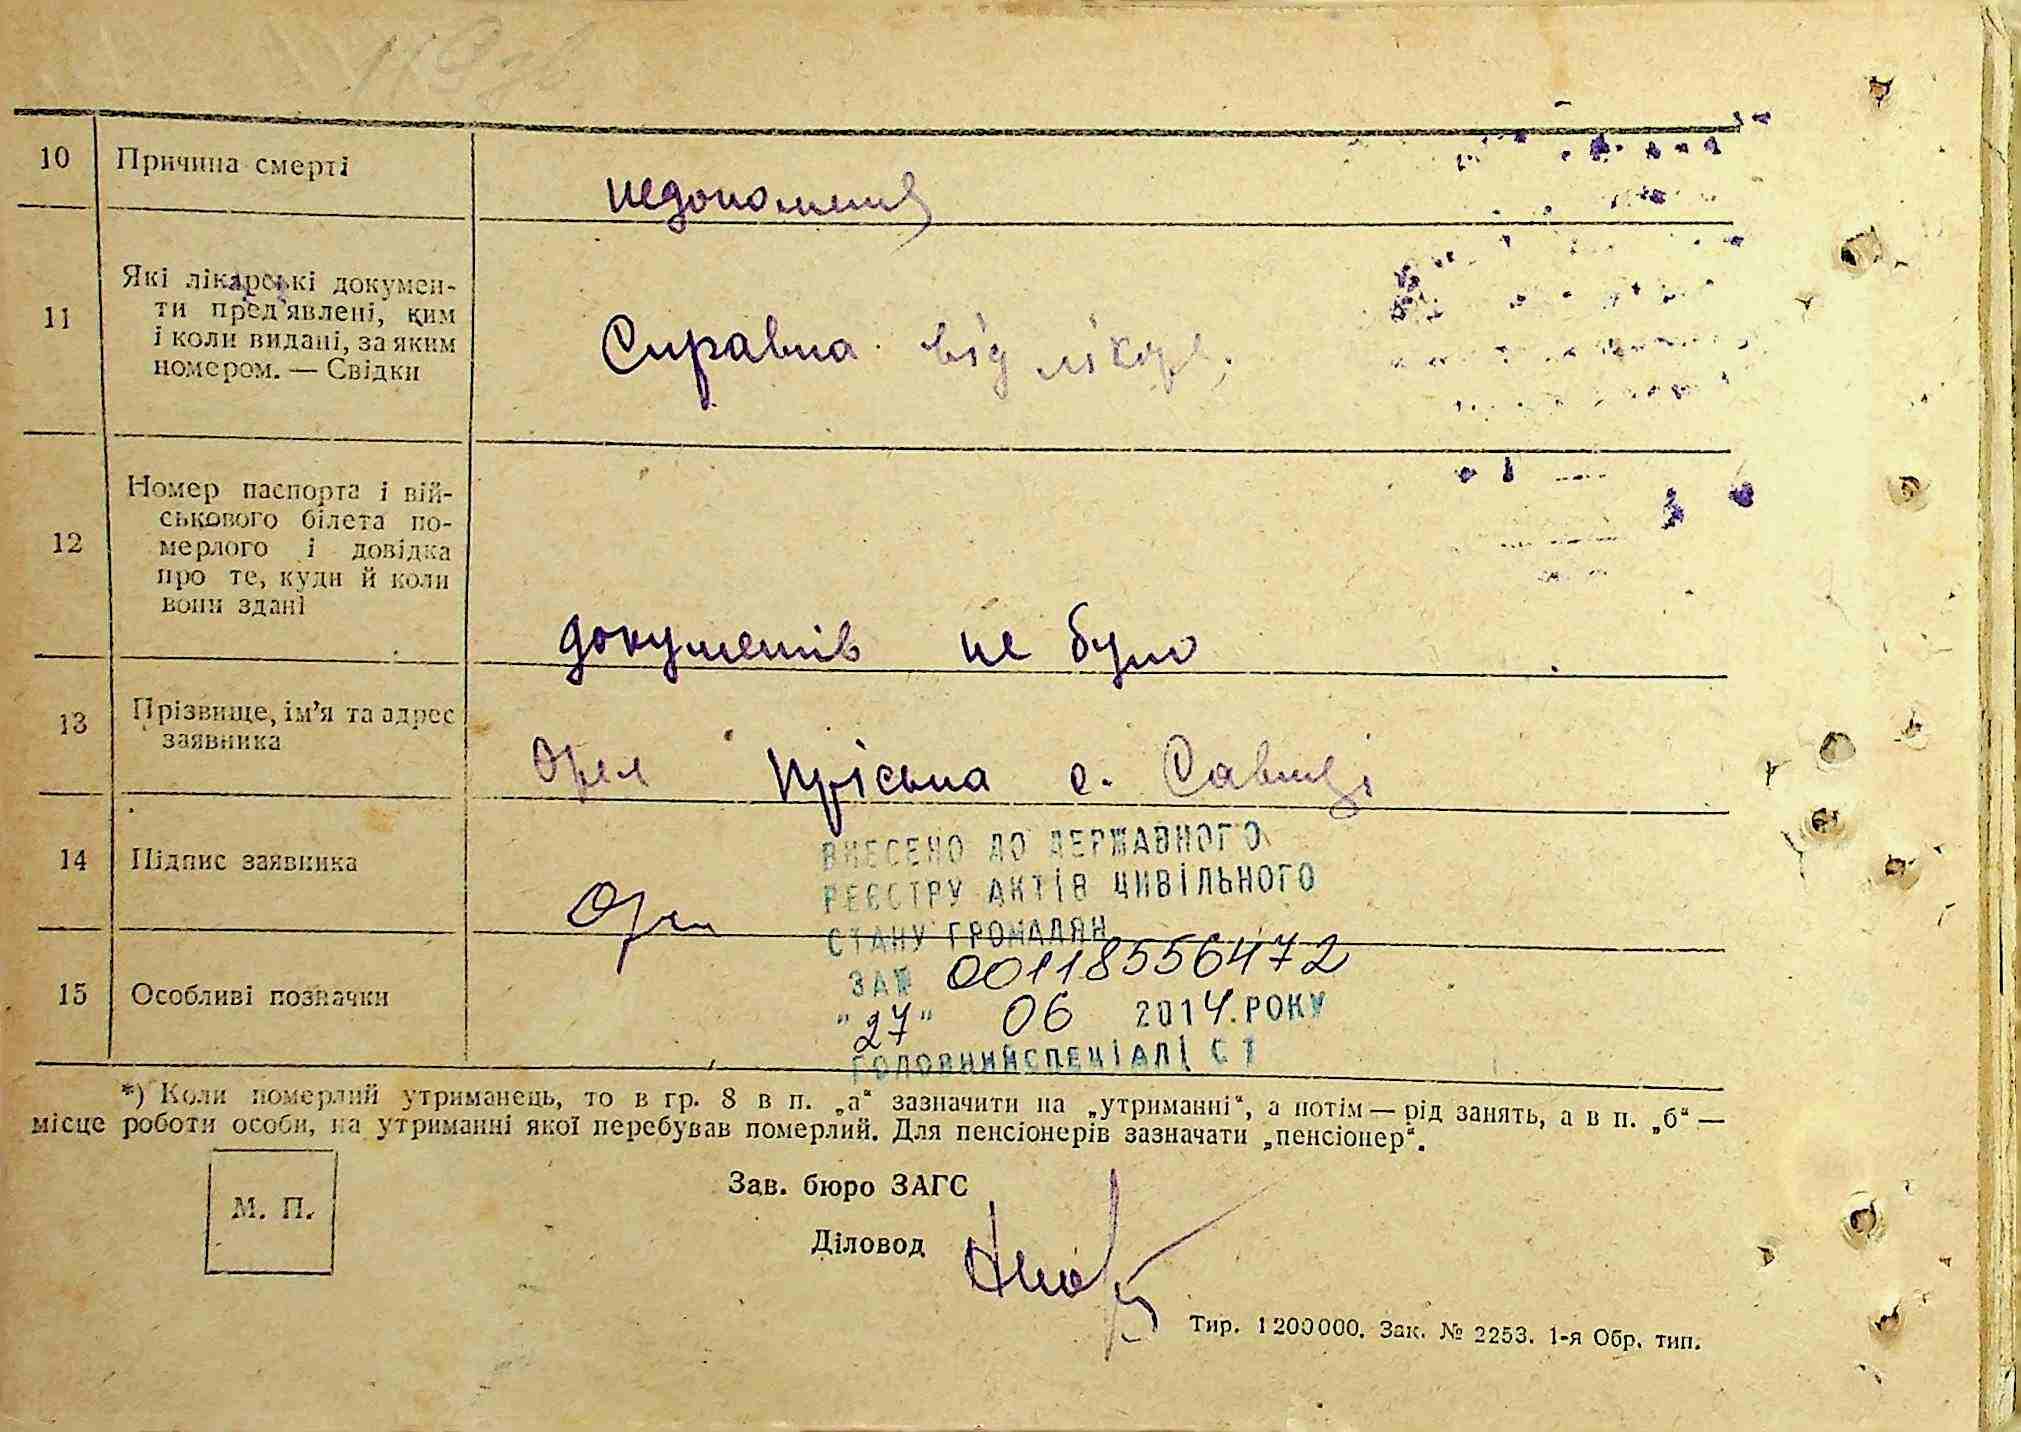 10 Причина смерті
11 Які лікарські докумен-
ти пред'явлені, ким
і коли видані, за яким
номером. — Свідки
Справка від лікаря
12 Номер паспорта і вій-
ськового білета по-
мерлого і довідка
про те, куди й коли
вони здані
документів не було
13 Прізвище, ім'я та адрес
заявника
Орел Пріська с. Савинці
14 Підпис заявника
ВНЕСЕНО ДО ДЕРЖАВНОГО
РЕЄСТРУ АКТІВ ЦИВІЛЬНОГО
СТАНУ ГРОМАДЯН
ЗА№ 00118556472
"27" 06 2014.РОКУ
ГОЛОВНИЙСПЕЦІАЛІСТ
15 Особливі позначки
*) Коли померлий утриманець, то в гр. 8 в п. „а“ зазначити на „утриманні“, а потім — рід занять, а в п. „б“ —
місце роботи особи, на утриманні якої перебував померлий. Для пенсіонерів зазначати „пенсіонер“.
М. П.
Зав. бюро ЗАГС
Діловод
Тир. 1200000. Зак. № 2253. 1-я Обр. тип.